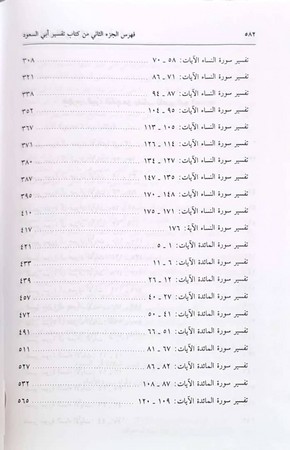 ٥٨٢ فهرس الجزء الثاني من كتاب تفسير أبي السعود
تفسير سورة النساء الآيات: ٥٨ ـ ٧٠ ........ ٣٠٨
تفسير سورة النساء الآيات: ٧١ ـ ٨٦ ........ ٣٢١
تفسير سورة النساء الآيات: ٨٧ ـ ٩٤ ........ ٣٣٨
تفسير سورة النساء الآيات: ٩٥ ـ ١٠٤ ........ ٣٥٢
تفسير سورة النساء الآيات: ١٠٥ ـ ١١٣ ........ ٣٦٧
تفسير سورة النساء الآيات: ١١٤ ـ ١٢٦ ........ ٣٧٦
تفسير سورة النساء الآيات: ١٢٧ ـ ١٣٤ ........ ٣٨٠
تفسير سورة النساء الآيات: ١٣٥ ـ ١٤٧ ........ ٣٨٧
تفسير سورة النساء الآيات: ١٤٨ ـ ١٧٠ ........ ٣٩٥
تفسير سورة النساء الآيات: ١٧١ ـ ١٧٥ ........ ٤١٠
تفسير سورة النساء الآية: ١٧٦ ........ ٤١٧
تفسير سورة المائدة الآيات: ١ ـ ٥ ........ ٤٢١
تفسير سورة المائدة الآيات: ٦ ـ ١١ ........ ٤٣٣
تفسير سورة المائدة الآيات: ١٢ ـ ٢٦ ........ ٤٣٩
تفسير سورة المائدة الآيات: ٢٧ ـ ٤٠ ........ ٤٥٧
تفسير سورة المائدة الآيات: ٤١ ـ ٥٠ ........ ٤٧٢
تفسير سورة المائدة الآيات: ٥١ ـ ٦٦ ........ ٤٩١
تفسير سورة المائدة الآيات: ٦٧ ـ ٨١ ........ ٥١١
تفسير سورة المائدة الآيات: ٨٢ ـ ٨٦ ........ ٥٢٧
تفسير سورة المائدة الآيات: ٨٧ ـ ١٠٨ ........ ٥٣٢
تفسير سورة المائدة الآيات: ١٠٩ ـ ١٢٠ ........ ٥٦٥